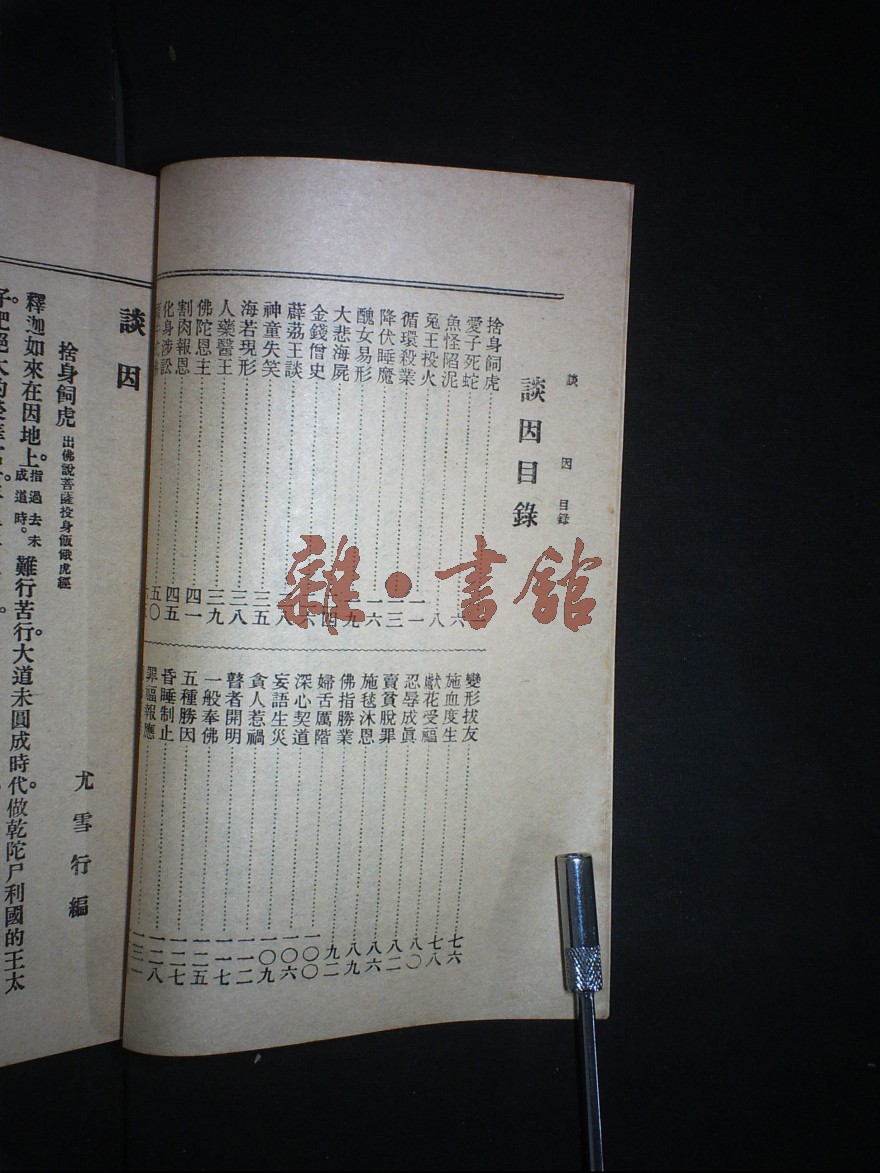 談因 目錄
談因目錄
捨身飼虎
愛子死蛇……六
魚怪陷泥……八
兔王投火……一一
循環殺業……一三
降伏睡魔……一六
醜女易形……一九
大悲海屍……四
金錢僧史……六
薜荔王談……八
神童失笑……三五
海若現形……三八
人藥醫王……三九
佛陀恩主……四一
割肉報恩……四五
化身涉訟……五〇
變形拔友……七六
施血度生……七八
獻花受福……八〇
忍辱成眞……八二
賣貧脫罪……八六
施毯沐恩……八九
佛指勝業……九二
婦舌厲階……一〇〇
深心契道……一〇六
妄語生災……一〇九
貪人惹禍……一一二
瞽者開明……一一七
一般奉佛……一二五
五種勝因……一二七
昏睡制止……一二八
罪福報應……一三一
談因
捨身飼虎 出佛說菩薩投身飯餓虎經
尤雪行編
釋迦如來在因地上。指過去未成道時。難行苦行。大道未圓成時代。做乾陀尸利國的王太
子。
雜·書館